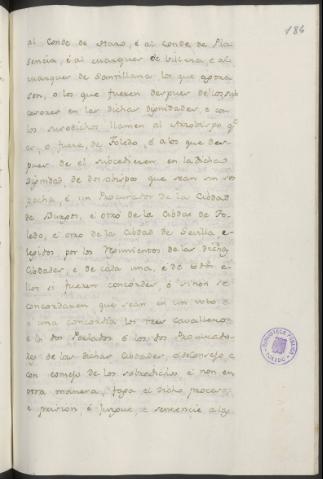 186
al Conde de Haro, é al conde de Pla-
sencia, é al marques de Villena, é al
marques de Santillana los que agora
son, o los que fueren despues de los sub
cesores en las dichas dignidades, e con
los susodichos llamen al Arzobispo q.e
es, o fuere, de Toledo, é a los que des-
pues de él subcedieren en la dicha
dignidad, de dos obispos que sean sin sos
pecha, é un Procurador de la Cibdad
de Burgos, é otro de la Cibdad de To-
ledo, é otro de la Cibdad de Sevilla e-
legidos por los Regimientos de las dichas
Cibdades, e de cada una, é de todos e-
llos si fueren concordes, ó si non se
concordaren que sean en un voto e
a una concordia los tres cavalleros
é los dos Perlados é los dos Procurado-
res de las dichas Cibdades, o Consejo, e
con consejo de los sobredichos é non en
otra manera, faga el dicho proceso
e prision é juzgue, é sentencie algu
BIBLIOTECA PUBLICA
TOLEDO